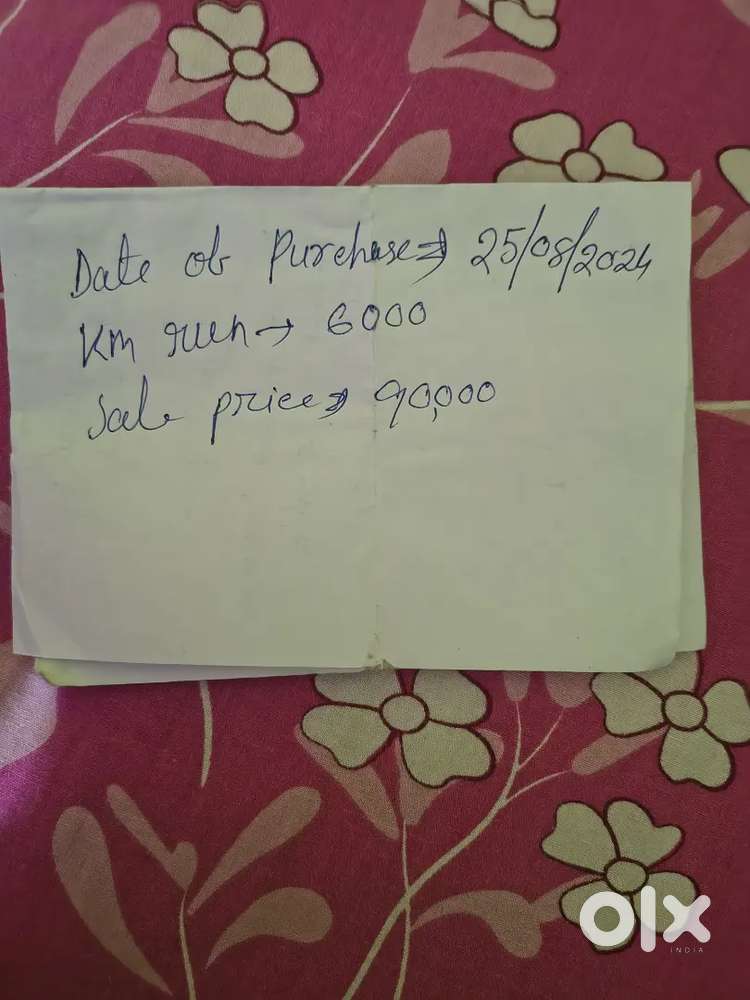 Date of Purchase → 25/08/2024
Km run → 6000
Sale price → 90,000
olx
INDIA